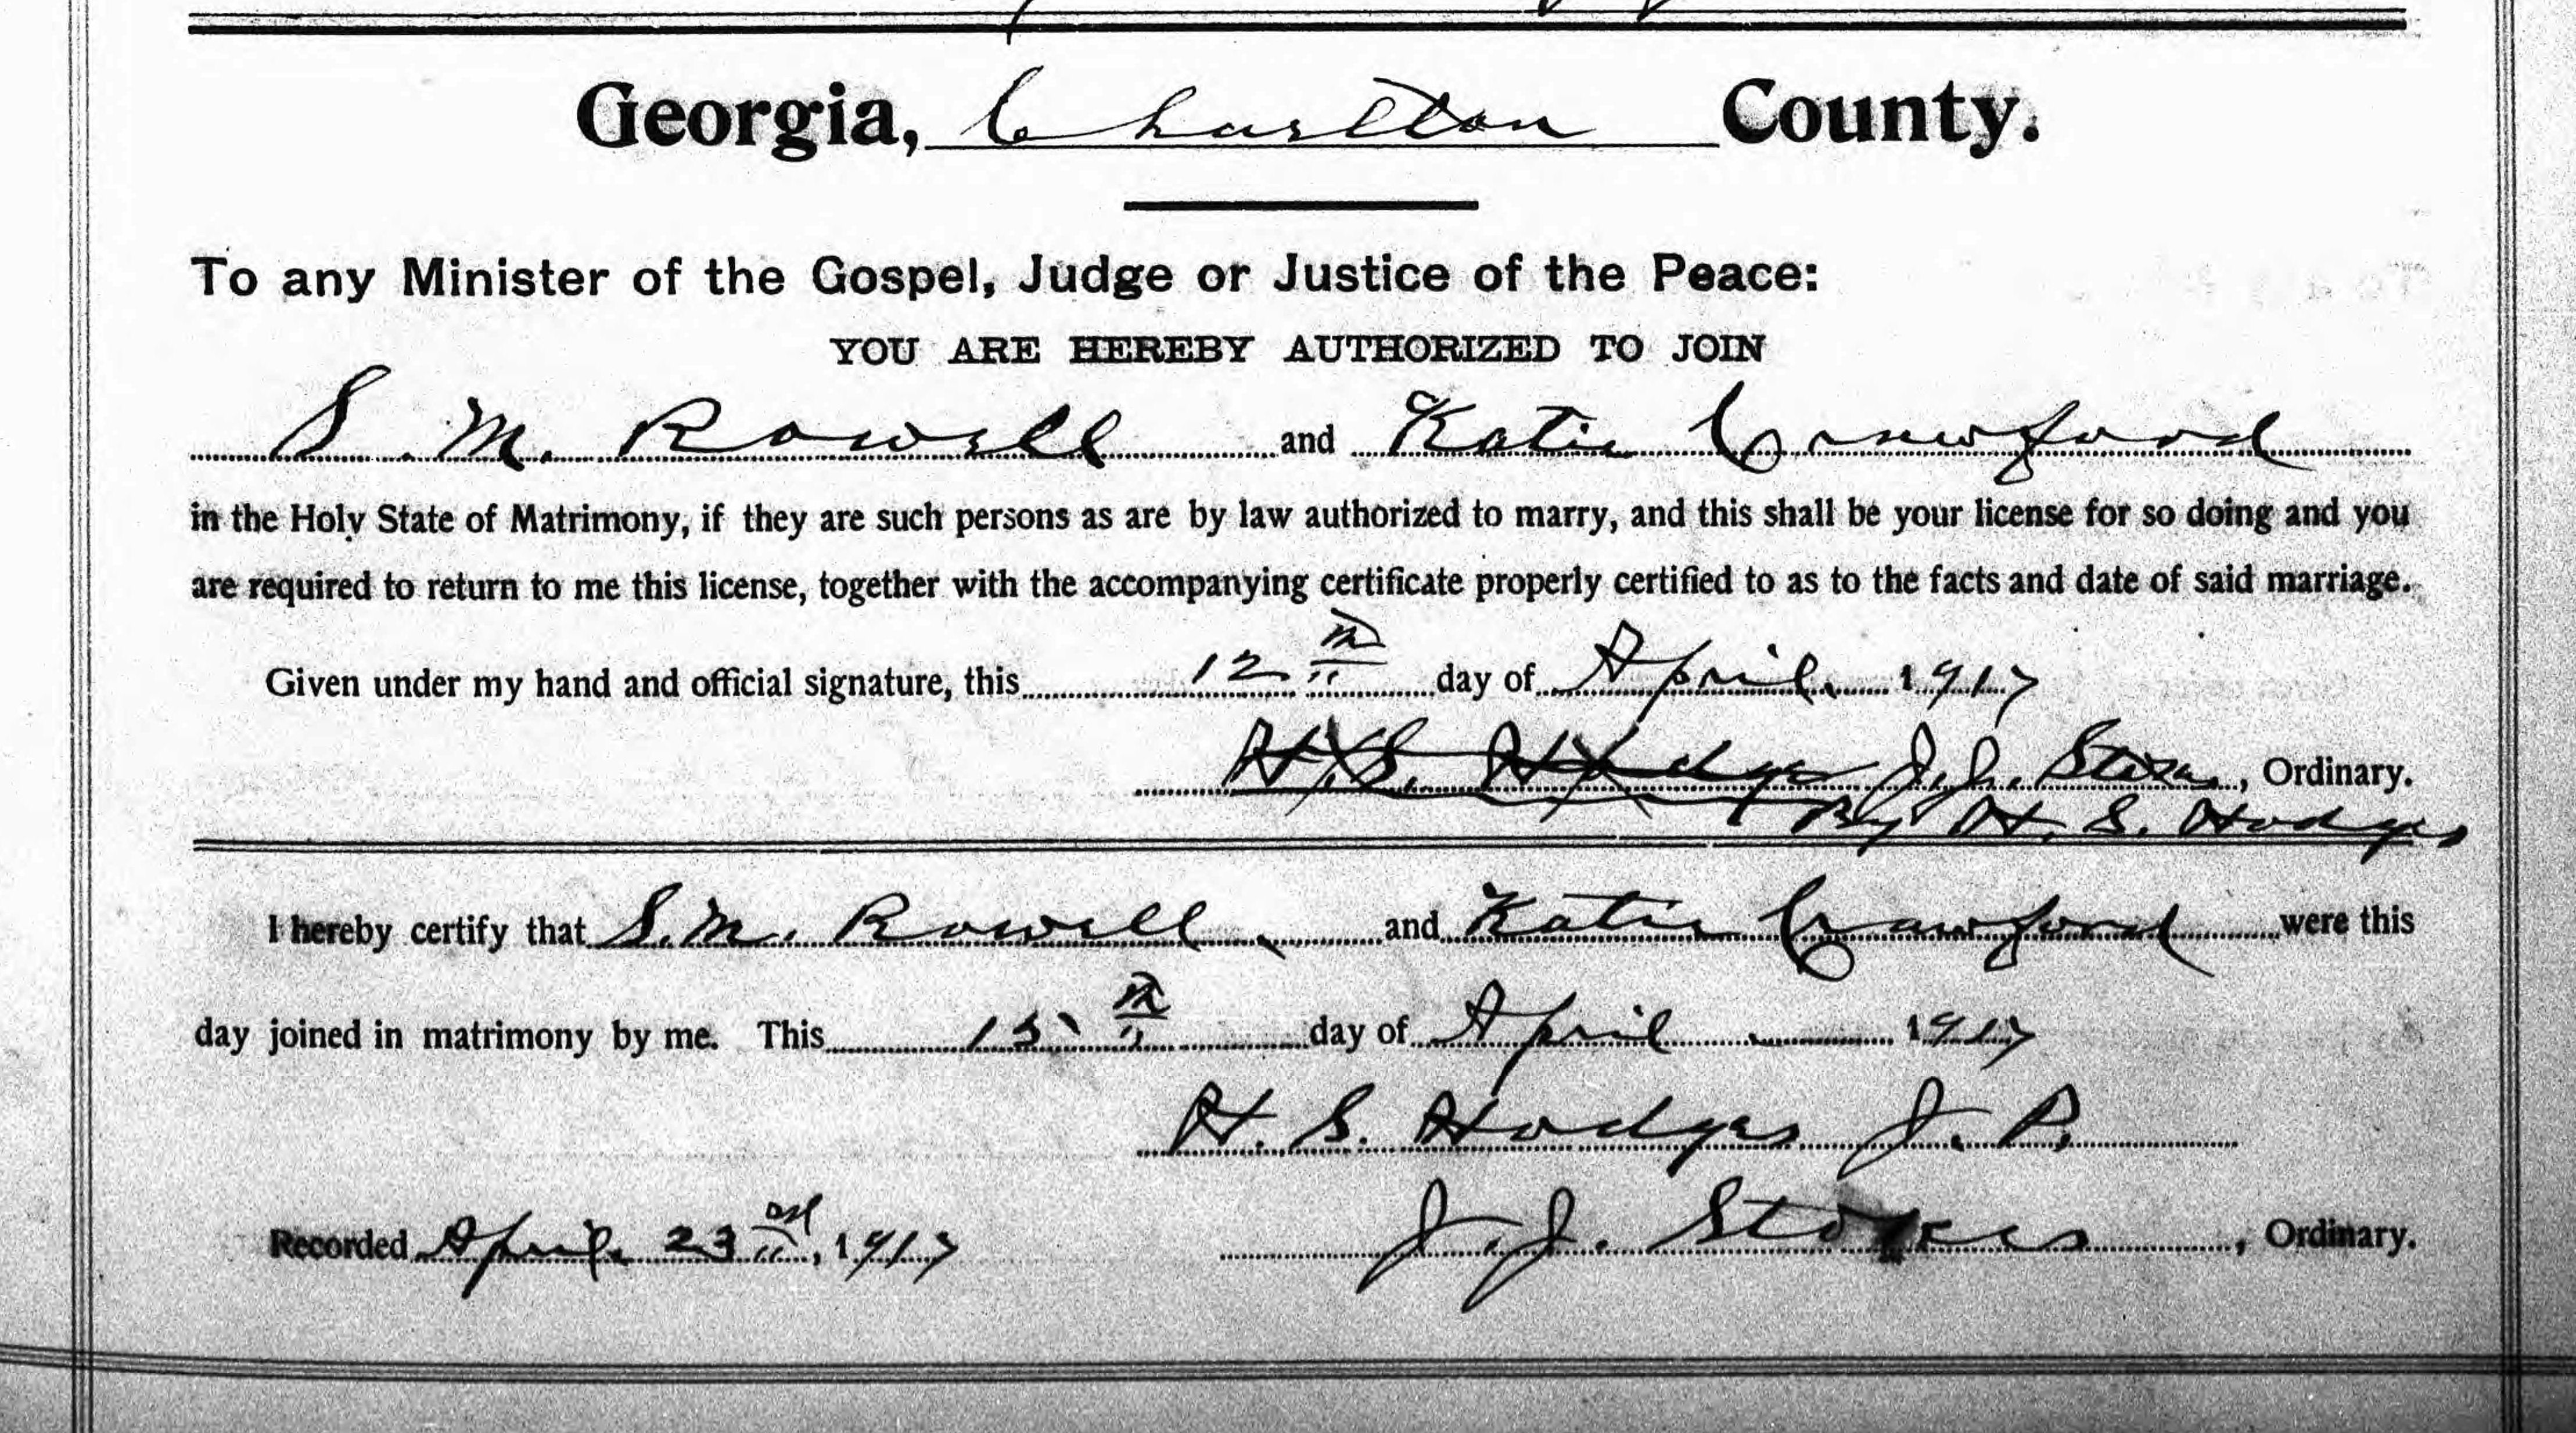 Georgia, Charlton County.
To any Minister of the Gospel, Judge or Justice of the Peace:
YOU ARE HEREBY AUTHORIZED TO JOIN
S. M. Rowell and Katie Crawford
in the Holy State of Matrimony, if they are such persons as are by law authorized to marry, and this shall be your license for so doing and you
are required to return to me this license, together with the accompanying certificate properly certified to as to the facts and date of said marriage.
Given under my hand and official signature, this 12th day of April 1917
H. S. Hodges J. J. , Ordinary.
By H. S. Hodges
I hereby certify that S. M. Rowell and Katie Crawford were this
day joined in matrimony by me. This 15th day of April 1917
H. S. Hodges J. P.
Recorded April 23rd, 1917 J. J. Stokes, Ordinary.